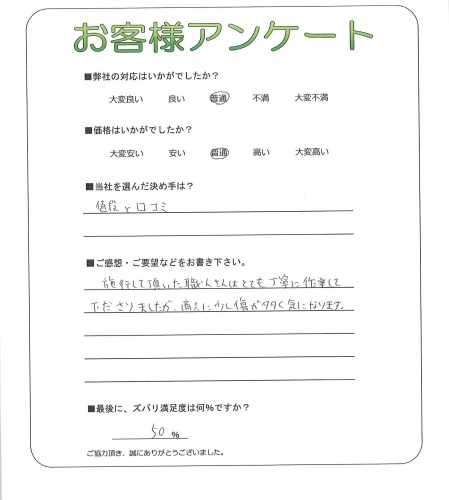 お客様アンケート
■弊社の対応はいかがでしたか?
大変良い 良い 普通 不満 大変不満
■価格はいかがでしたか?
大変安い 安い 普通 高い 大変高い
■当社を選んだ決め手は?
値段と口コミ
■ご感想・ご要望などをお書き下さい。
施行して頂いた職人さんはとても丁寧に作業して
下ださりましたが、商品に少し傷が多く気になります。
■最後に、ズバリ満足度は何%ですか?
50 %
ご協力頂き、誠にありがとうございました。